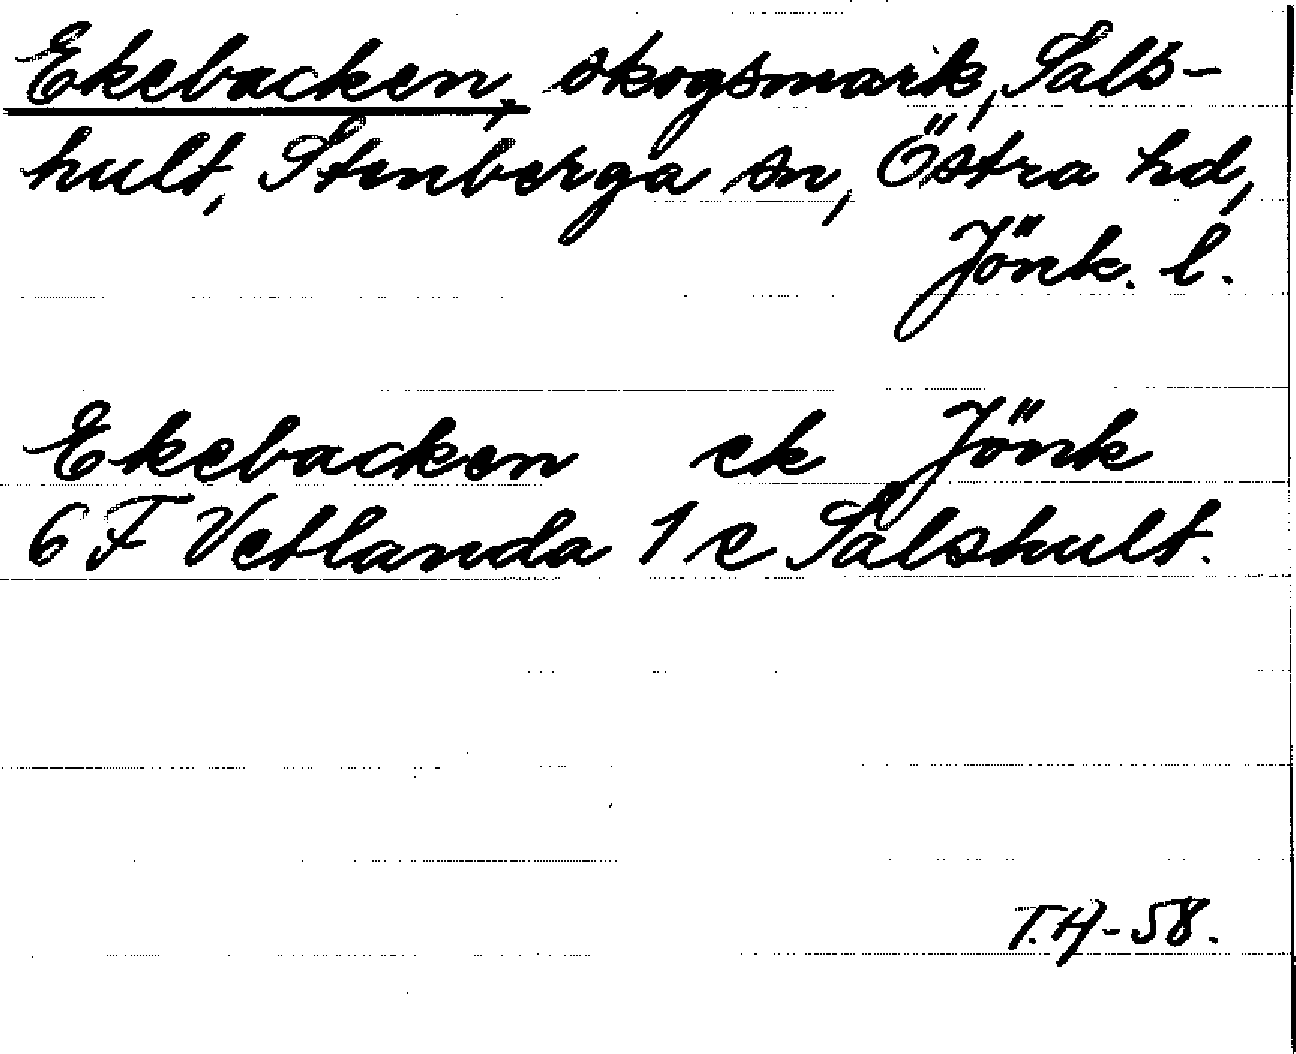 Ekebacken, skogsmark, Sals-
hult, Stenberga sn, Östra hd,
Jönk. l.
Ekebacken ek Jönk
6 F Vetlanda 1 c Salshult.
T.H-58.